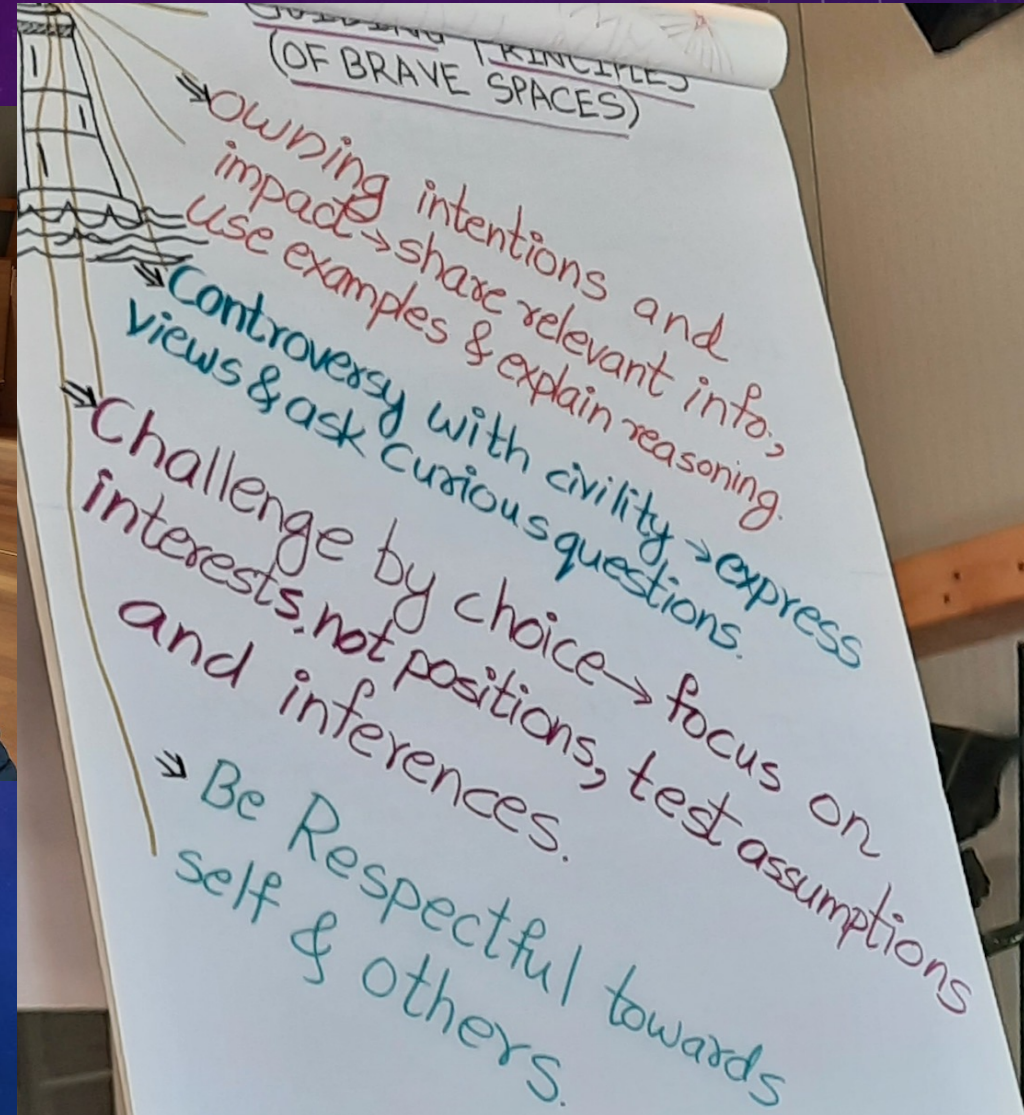 GUIDING PRINCIPLES
(OF BRAVE SPACES)
Owning intentions and
impact → share relevant info.,
use examples & explain reasoning.
Controversy with civility → express
views & ask curious questions.
Challenge by choice → focus on
interests, not positions, test assumptions
and inferences.
Be Respectful towards
self & others.